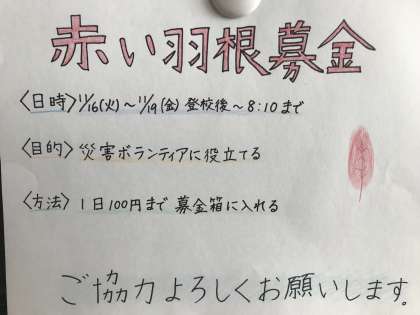 赤い羽根募金
〈日時〉11/16(火)〜11/19(金) 登校後〜8:10まで
〈目的〉災害ボランティアに役立てる
〈方法〉1日100円まで 募金箱に入れる
ご協力よろしくお願いします。